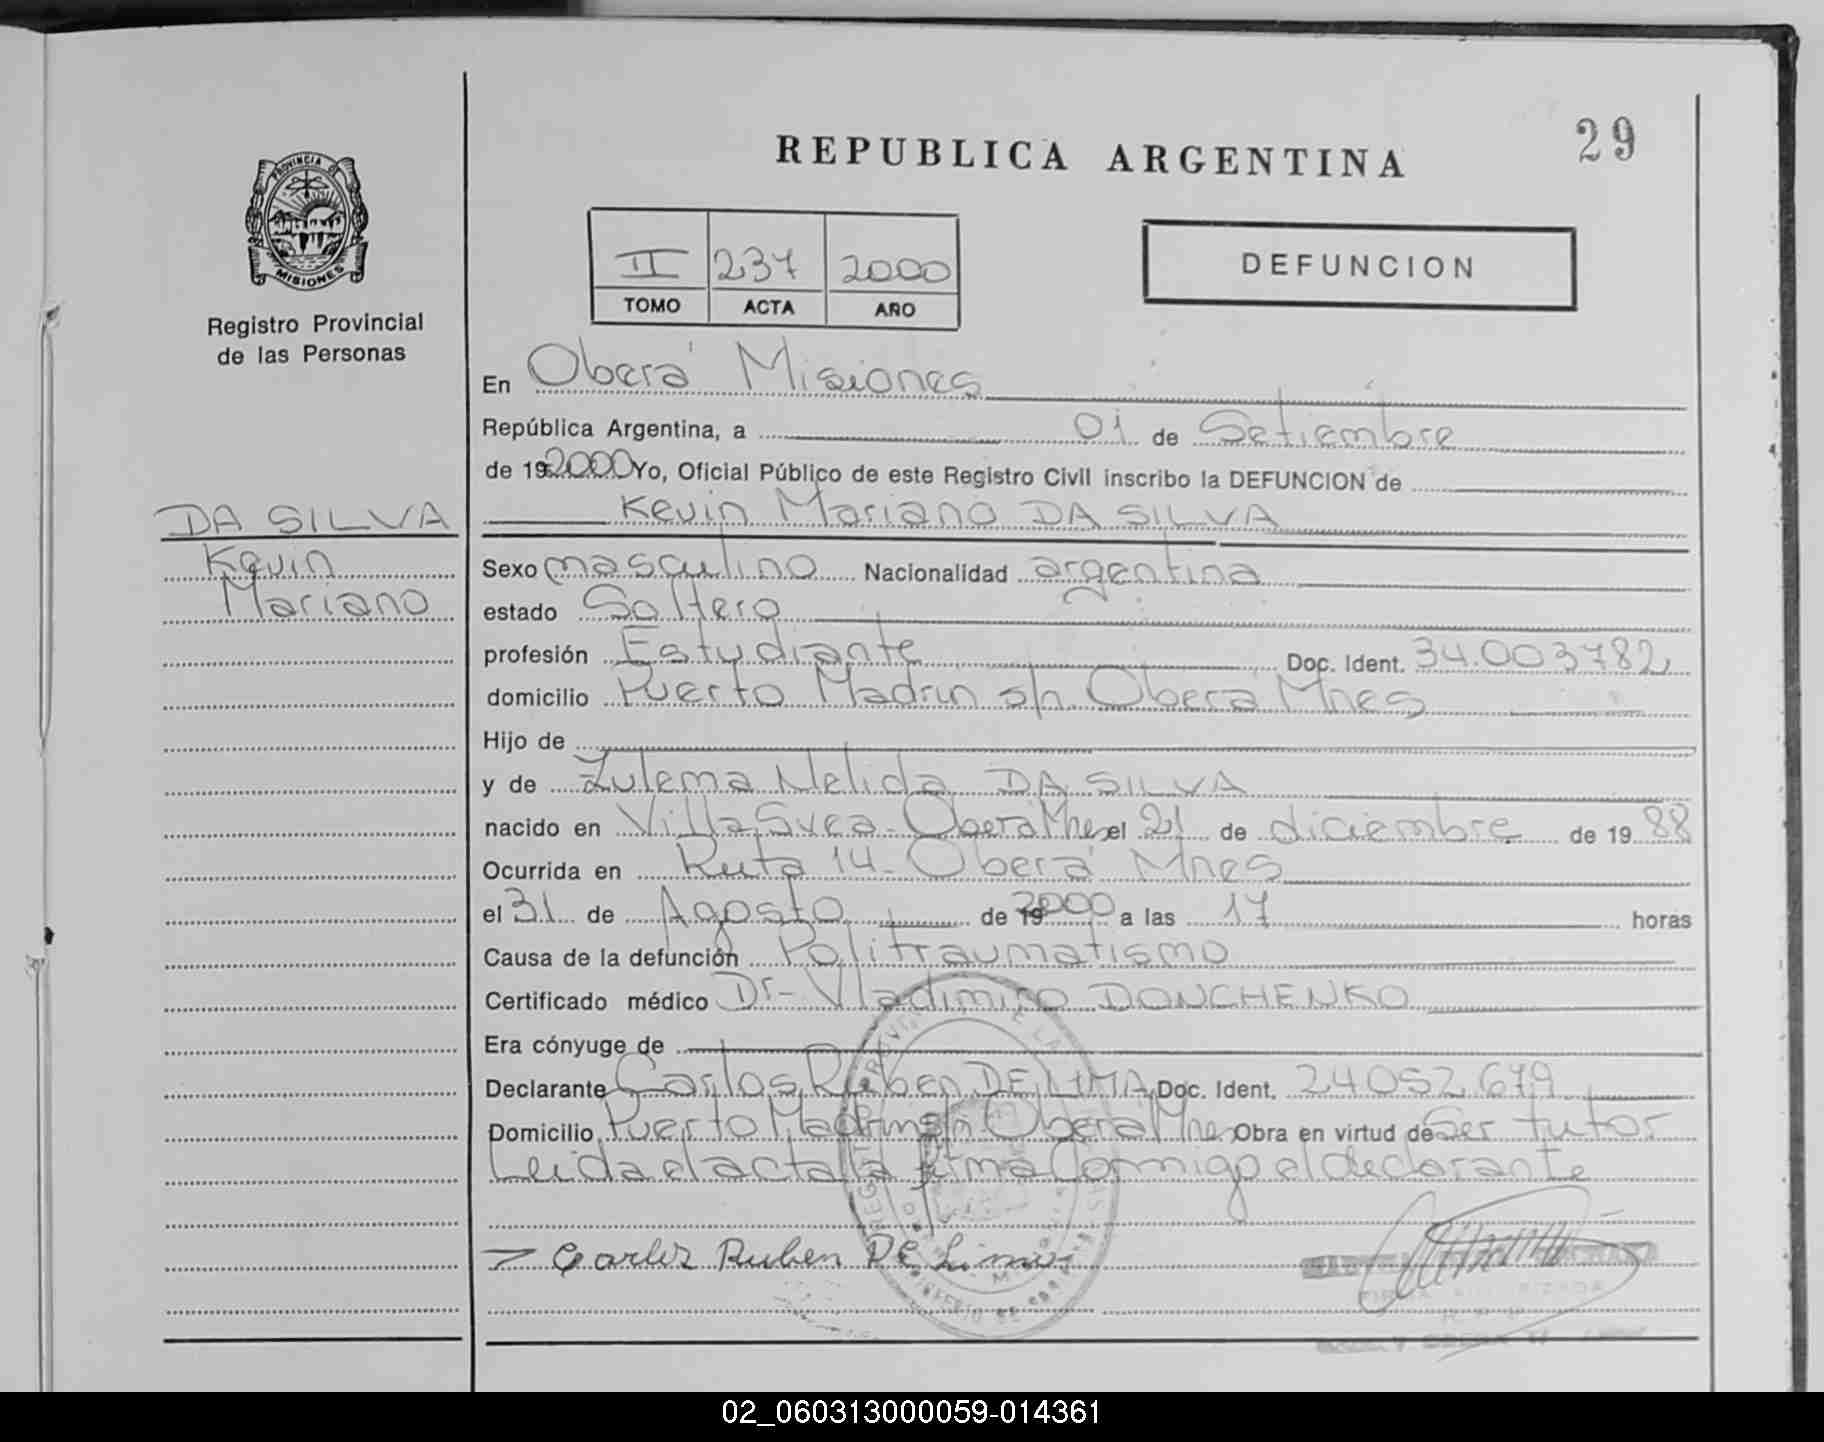 29
REPUBLICA ARGENTINA
PROVINCIA DE
MISIONES
Registro Provincial
de las Personas
II 237 2000
TOMO ACTA AÑO
DEFUNCION
En Oberá Misiones
República Argentina, a 01 de Setiembre
de 19 2000 Yo, Oficial Público de este Registro Civil inscribo la DEFUNCION de
DA SILVA
Kevin
Mariano
Kevin Mariano DA SILVA
Sexo masculino Nacionalidad argentina
estado Soltero
profesión Estudiante Doc. Ident. 34.003782
domicilio Puerto Madrin s/n. Oberá Mnes
Hijo de
y de Zulema Nelida DA SILVA
nacido en Villa Svea - Oberá Mnes el 21 de diciembre de 19 88
Ocurrida en Ruta 14 - Oberá Mnes
el 31 de Agosto de 19 2000 a las 17 horas
Causa de la defunción Politraumatismo
Certificado médico Dr - Vladimiro DONCHENKO
Era cónyuge de
Declarante Carlos Ruben DE LIMA Doc. Ident. 24052.679
Domicilio Puerto Madrin s/n Oberá Mnes Obra en virtud de Ser tutor
Leida el acta la firma Conmigo el declarante
Carlos Ruben DE Lima
02_060313000059-014361